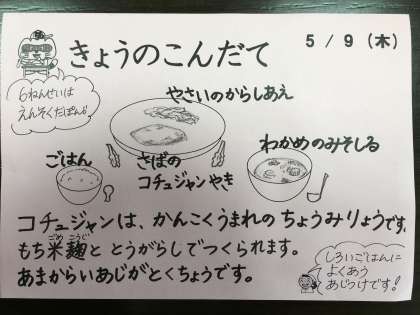 きょうのこんだて
5 / 9 (木)
6ねんせいは
えんそくだぽん♪
やさいのからしあえ
さばの
コチュジャンやき
ごはん
わかめのみそしる
コチュジャンは、かんこくうまれの ちょうみりょうです。
もち米麹と とうがらしでつくられます。
こめ こうじ
あまからいあじがとくちょうです。
しろいごはんに
よくあう
あじつけです!